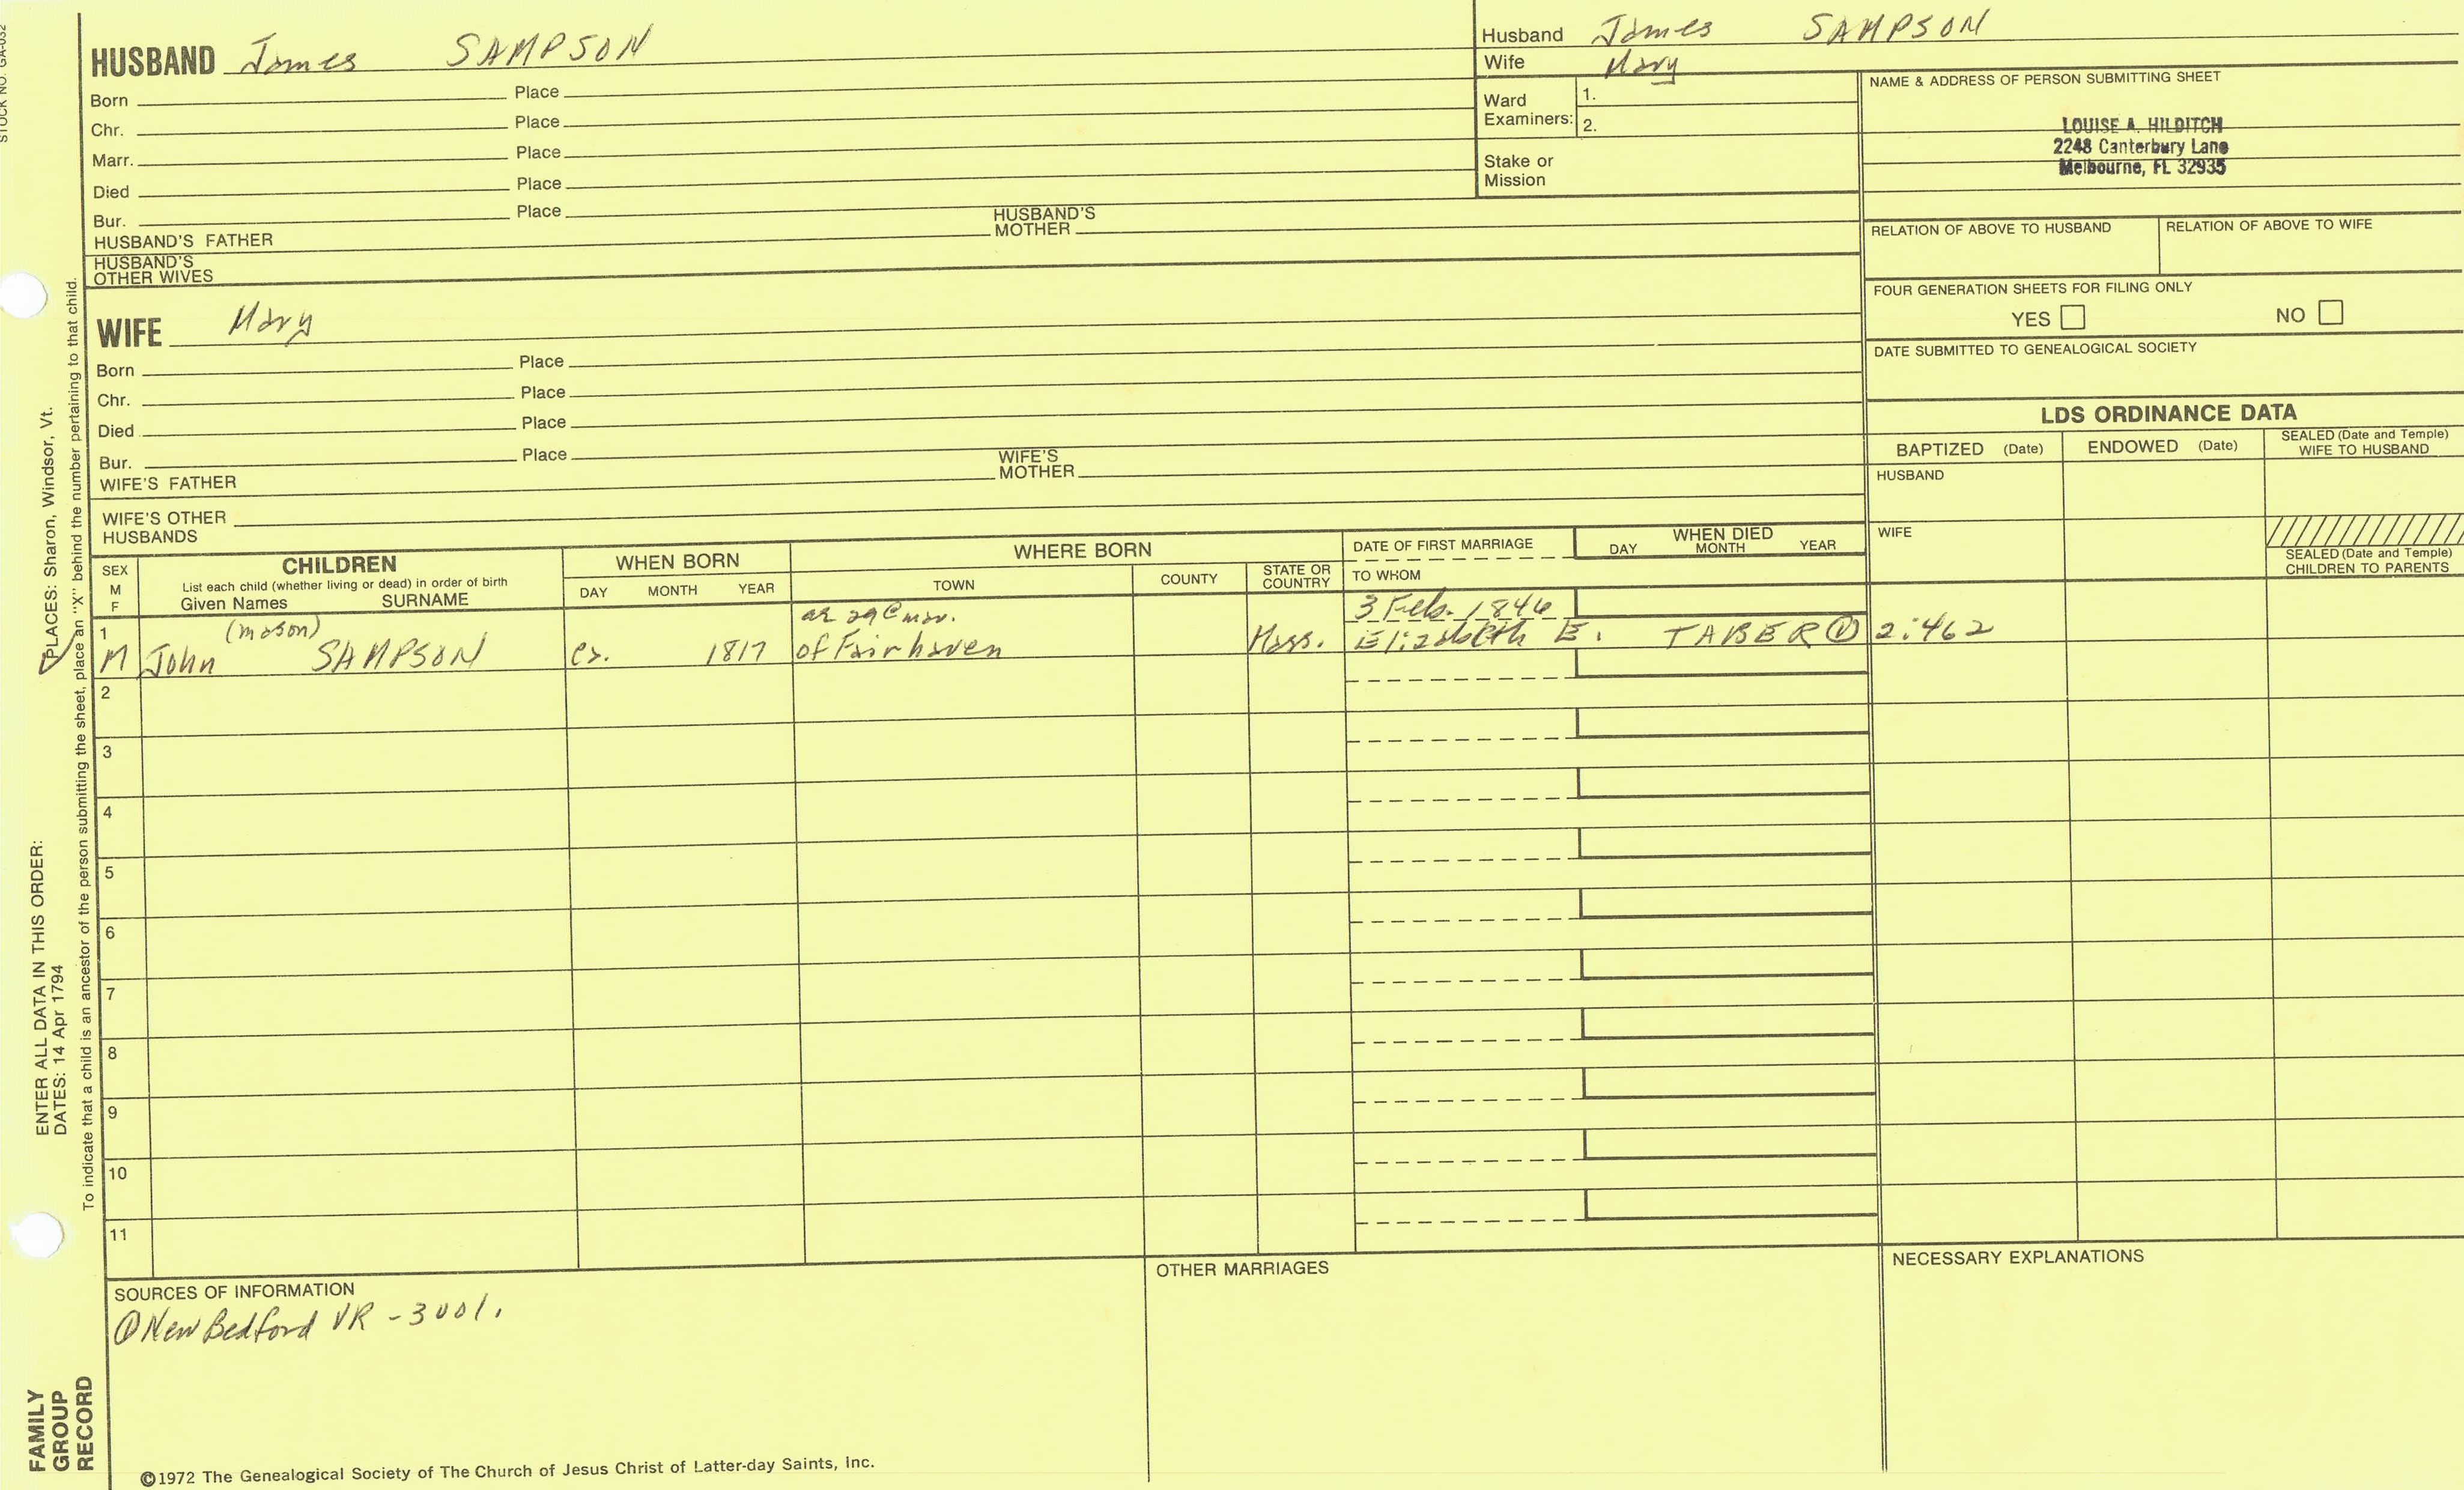 STOCK NO. GA-032
HUSBAND James SAMPSON
Born Place
Chr. Place
Marr. Place
Died Place
Bur. Place
HUSBAND'S FATHER HUSBAND'S MOTHER
HUSBAND'S OTHER WIVES
Husband James SAMPSON
Wife Mary
Ward Examiners: 1.
2.
Stake or Mission
NAME & ADDRESS OF PERSON SUBMITTING SHEET
LOUISE A. HILDITCH
2248 Canterbury Lane
Melbourne, FL 32935
RELATION OF ABOVE TO HUSBAND RELATION OF ABOVE TO WIFE
FOUR GENERATION SHEETS FOR FILING ONLY
YES NO
DATE SUBMITTED TO GENEALOGICAL SOCIETY
WIFE Mary
Born Place
Chr. Place
Died Place
Bur. Place
WIFE'S FATHER WIFE'S MOTHER
WIFE'S OTHER HUSBANDS
LDS ORDINANCE DATA
BAPTIZED (Date) ENDOWED (Date) SEALED (Date and Temple) WIFE TO HUSBAND
HUSBAND
WIFE
SEALED (Date and Temple) CHILDREN TO PARENTS
SEX M F
CHILDREN
List each child (whether living or dead) in order of birth
Given Names SURNAME
WHEN BORN
DAY MONTH YEAR
WHERE BORN
TOWN COUNTY STATE OR COUNTRY
DATE OF FIRST MARRIAGE
TO WHOM
WHEN DIED
DAY MONTH YEAR
1 (mason) ae 29 @ mar. 3 Feb. 1846
M John SAMPSON ca. 1817 of Fairhaven Mass. Elizabeth E. TABER ① 2:462
2
3
4
5
6
7
8
9
10
11
SOURCES OF INFORMATION
① New Bedford VR - 3001.
OTHER MARRIAGES
NECESSARY EXPLANATIONS
©1972 The Genealogical Society of The Church of Jesus Christ of Latter-day Saints, Inc.
FAMILY GROUP RECORD
ENTER ALL DATA IN THIS ORDER:
DATES: 14 Apr 1794
PLACES: Sharon, Windsor, Vt.
To indicate that a child is an ancestor of the person submitting the sheet, place an "X" behind the number pertaining to that child.